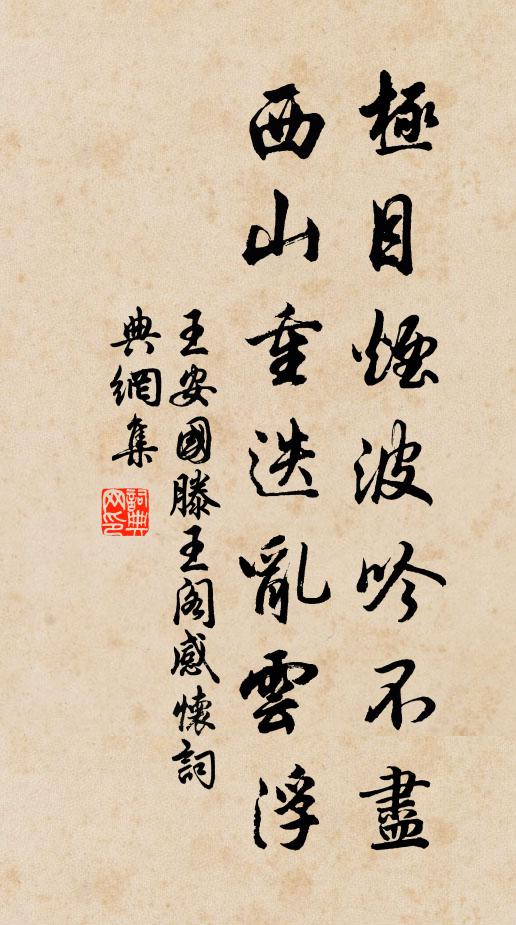 極目煙波吟不盡
西山重迭亂雲浮
王安國滕王阁感懷詞
典網集
詞典網印